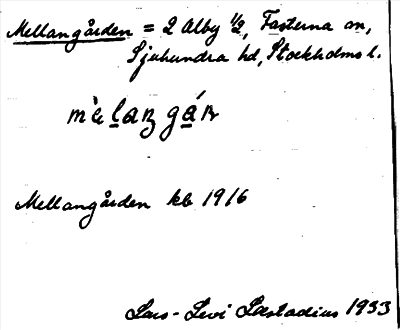 Mellangården = 2 Alby ½, Fasterna sn,
Sjuhundra hd, Stockholms l.
Mellangården kb 1916
Lars-Levi Læstadius 1933